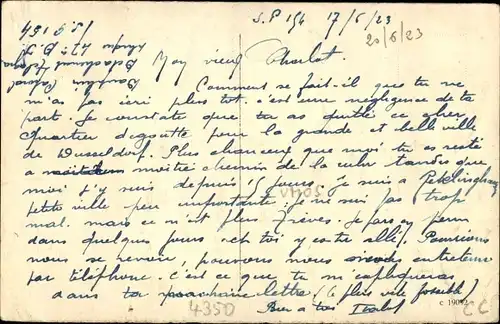 S.P 154 17/6/23
20/6/23
S.P 154
Mon vieux Charlot.
Comment se fait-il que tu ne
m'as pas écrit plus tot. c'est une négligence de ta
part. Je constate que tu as quitté ce cher
quartier degoutté pour la grande et belle ville
de Dusseldorf. Plus chanceux que moi tu es resté
a moitié chemin de la cubr tandis que
moi j'y suis depuis 15 jours. Je suis a Recklinghausen
petite ville peu importante. je ne suis pas trop
mal. mais ce n'est plus Trèves. Je pars en perm
dans quelques jours. et toi y es tu allé. Pourrions
nous se revoir, pouvons nous entretenir
par téléphone. C'est ce que tu m'expliqueras
dans ta prochaine lettre (le plus vite possible)
Bien a toi
4350
c 19092
CC